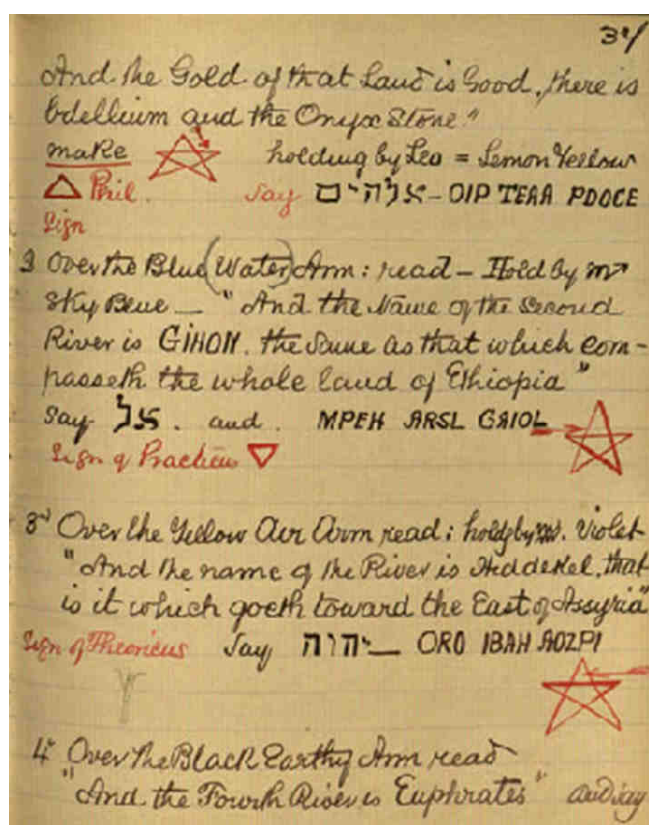 34
And the Gold of that Land is Good, there is
bdellium and the Onyx Stone"
make holding by Leo = Lemon Yellow
△ Phil. Say אלהים – OIP TEAA PDOCE
Sign
2 Over the Blue (Water) Arm: read – Hold by ♏
Sky Blue – "And the Name of the Second
River is GIHON. the Same as that which com-
passeth the whole land of Ethiopia"
Say אל. and. MPEH ARSL GAIOL
Sign of Practicus ▽
3d Over the Yellow Air Arm read: hold by ♒. Violet
"And the name of the River is Hiddekel, that
is it which goeth toward the East of Assyria"
Sign of Theoricus Say יהוה – ORO IBAH AOZPI
4th Over the Black Earthy Arm read
"And the Fourth River is Euphrates" and say